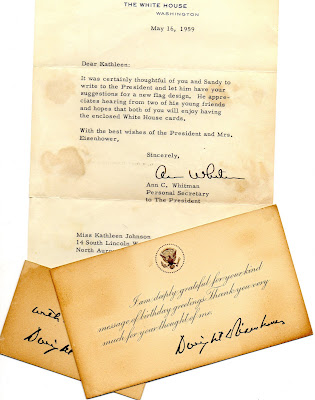 THE WHITE HOUSE
WASHINGTON
May 16, 1959
Dear Kathleen:
It was certainly thoughtful of you and Sandy to
write to the President and let him have your
suggestions for a new flag design. He appre-
ciates hearing from two of his young friends
and hopes that both of you will enjoy having
the enclosed White House cards.
With the best wishes of the President and Mrs.
Eisenhower,
Sincerely,
Ann Whitman
Ann C. Whitman
Personal Secretary
to The President
Miss Kathleen Johnson
14 South Lincoln
North
I am deeply grateful for your kind
message of birthday greetings. Thank you very
much for your thought of me.
Dwight Eisenhower
with
Dwight